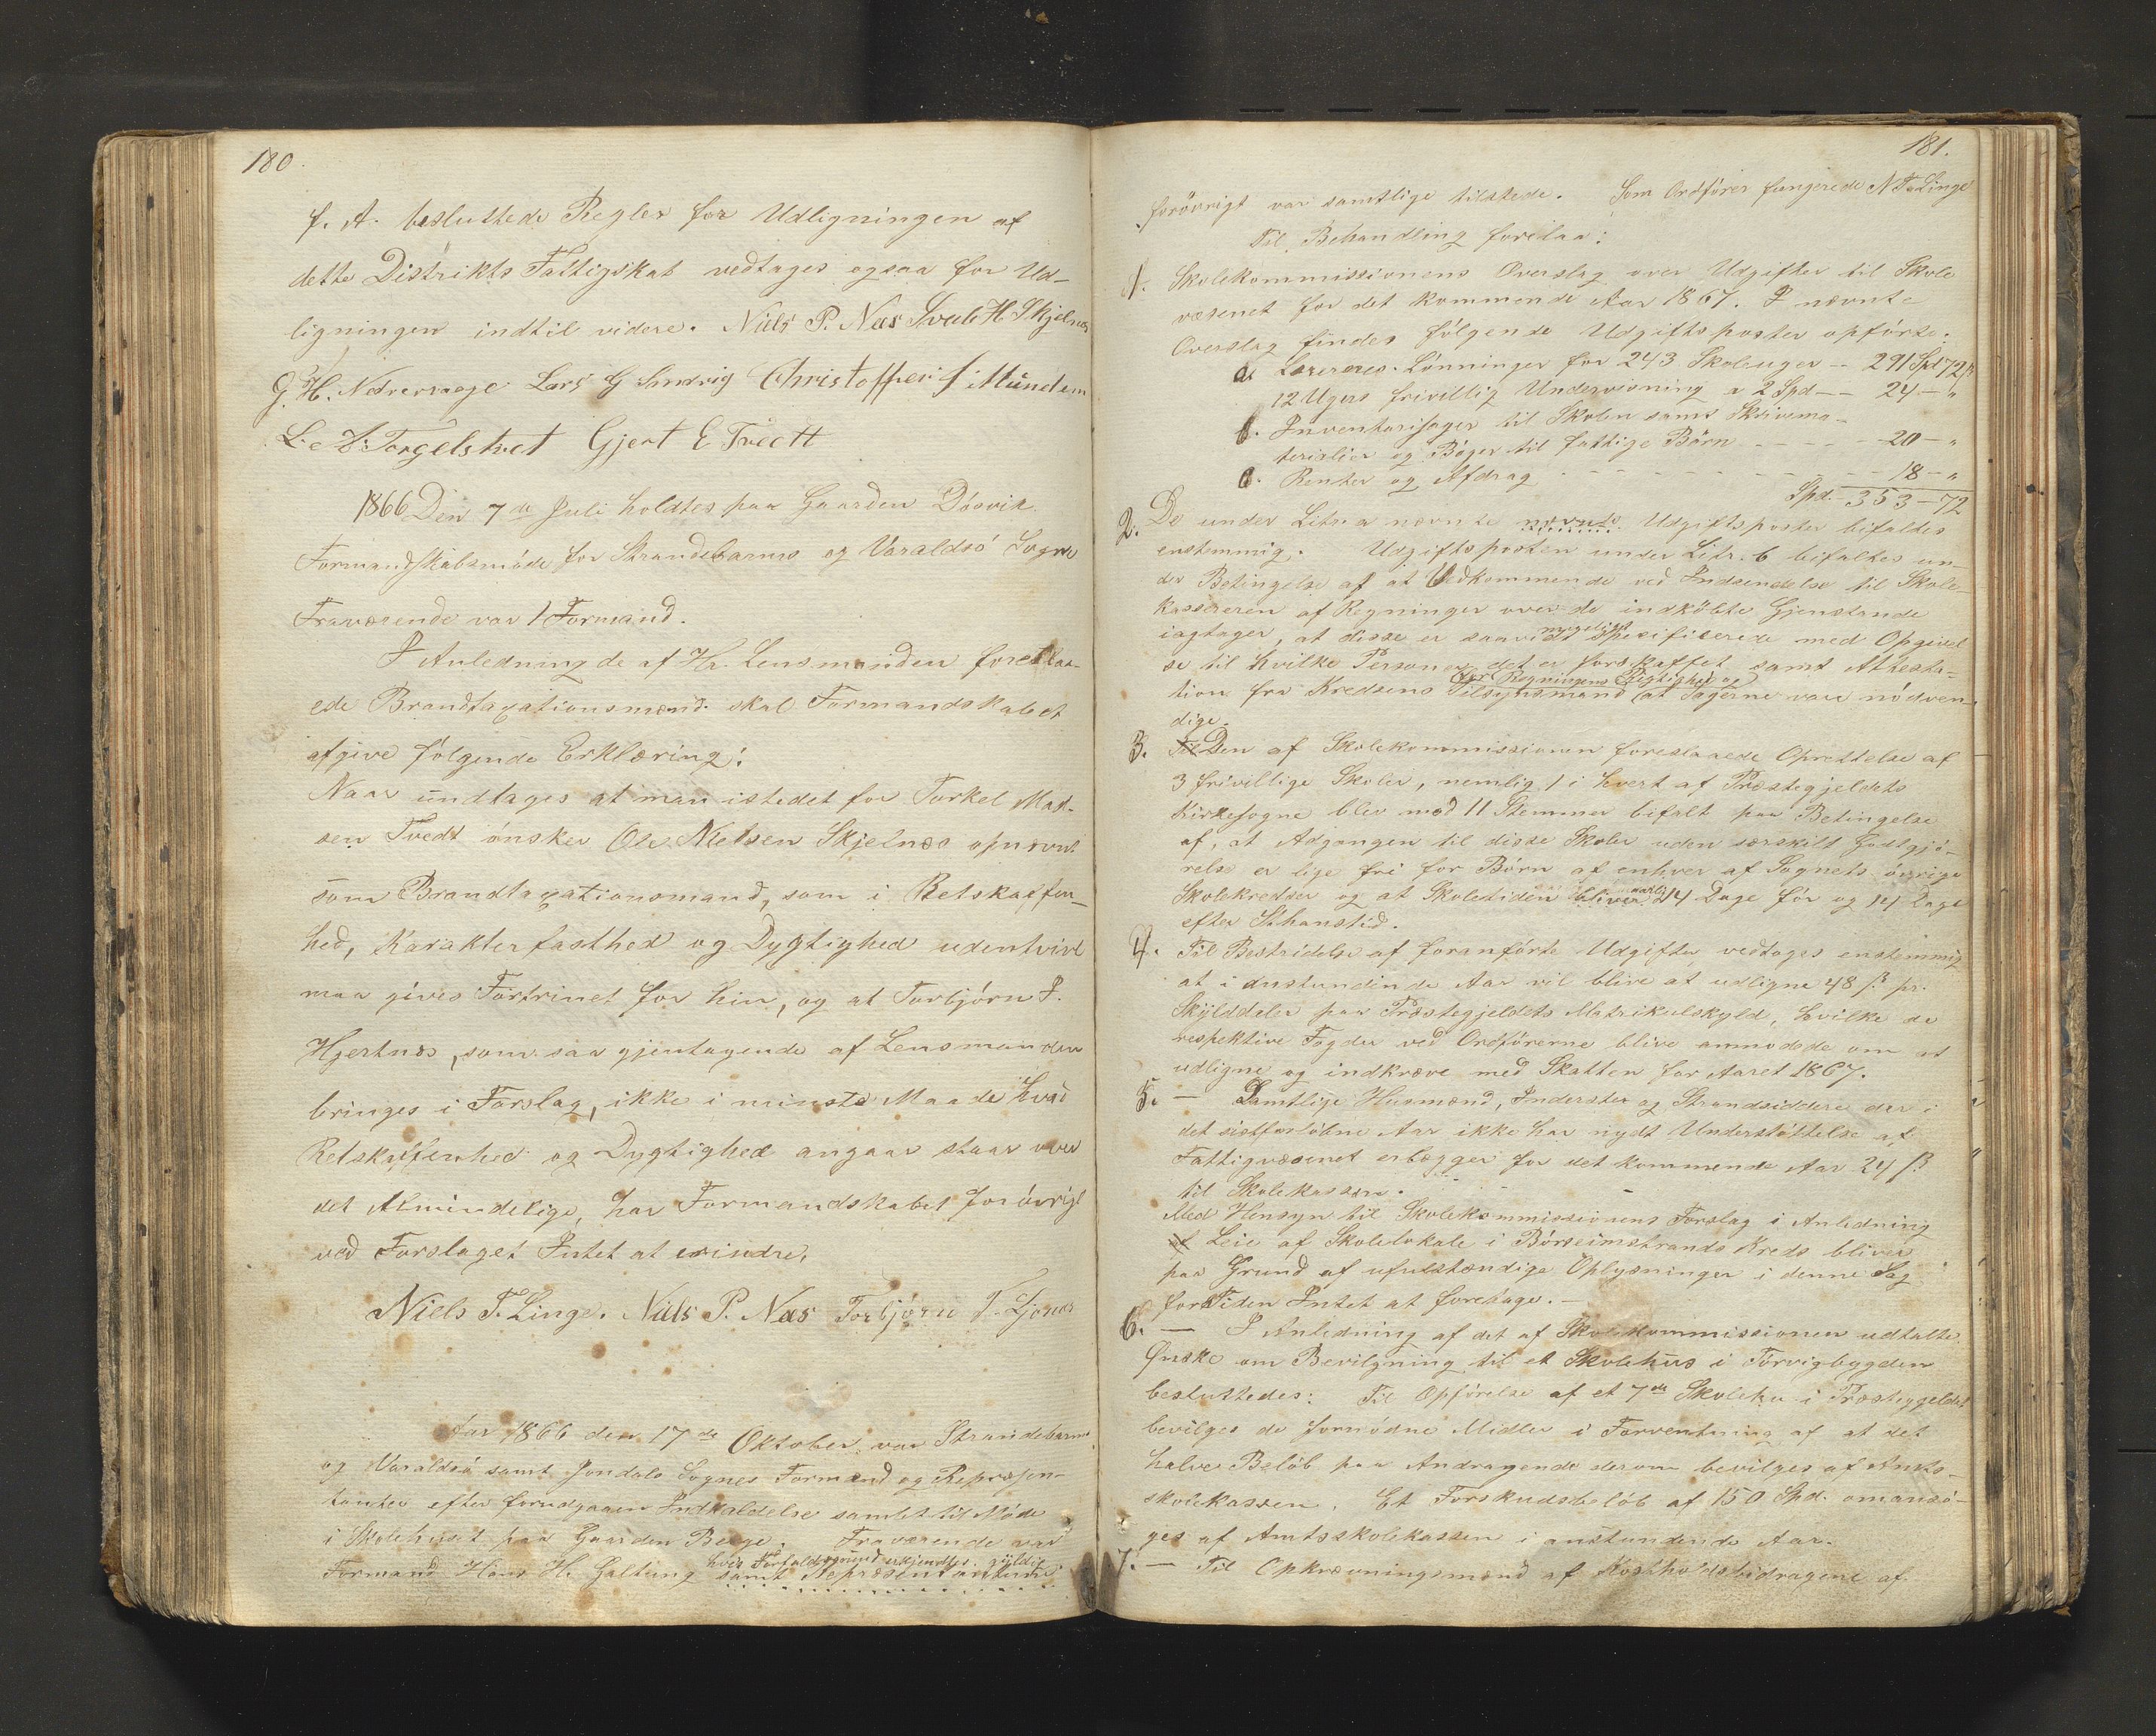 180.
f. A. besluttede Regler for Udligningen af
dette Distrikts Fattigskat vedtages ogsaa for Ud-
ligningen indtil videre. Niels P. Næs Svale H. Skjelnæs
G. H. Nedrevaage Lars G Sandvig Christoffer S Mundem
L. A. Torgelstvet Gjert E Tvedt
1866 Den 7de Juli holdtes paa Gaarden Dösvik
Formandskabsmöde for Strandebarms og Varaldsö Sogne
Fraværende var 1 Formand.
I Anledning de af Hr. Lensmanden foreslaa-
ede Brandtaxationsmænd skal Formandskabet
afgive fölgende Erklæring:
Naar undtages at man istedet for Torkel Mat-
sen Tvedt önsker Ole Nielsen Skjelnæs opnævnt
som Brandtaxationsmand, som i Retskaffen-
hed, Karakterfasthed og Dygtighed udentvivl
maa gives Fortrinet for hin, og at Torbjörn I.
Hjertnæs, som saa gjentagende af Lensmanden
bringes i Forslag, ikke i minste Maade hvad
Retskaffenhed og Dygtighed angaar staar over
det Almindelige, har Formandskabet forövrigt
ved Forslaget Intet at erindre.
Niels T. Linge. Niels P. Næs Torbjörn T. Ljones
Aar 1866 den 17de Oktober var Strandebarms
og Varaldsö samt Jondals Sognes Formænd og Repræsen-
tanter efter forudgaaen Indkaldelse samlet til Möde
i Skolehuset paa Gaarden Berge. Fraværende var
hvis Forfaldsgrund erkjendtes gyldig
Formand Hans H. Galtung samt Repræsentanterne
181.
forövrigt var samtlige tilstede. Som Ordförer fungerede N T. Linge
Til Behandling forelaa:
1. Skolekommissionens Overslag over Udgifter til Skole
væsenet for det kommende Aar 1867. I nævnte
Overslag findes fölgende Udgiftsposter opförte:
a. Lærernes Lönninger for 243 Skoleuger -- 291 Spd 72 ß
12 Ugers frivillig Undervisning a 2 Spd -- 24 - "
b. Inventarisager til Skolen samt Skrivema-
terialier og Böger til fattige Börn - - - - 20 - "
c. Renter og Afdrag - - - - - - - - 18 - "
Spd. 353 - 72
2. De under Litr. a nævnte nævnte Udgiftsposter bifaldes
enstemmig. Udgiftsposten under Litr. b bifaldes un-
der Betingelse af at Vedkommende ved Indsendelse til Skole-
kassereren af Regninger over de indköbte Gjenstande
iagtager, at disse er saavidt muligt spesifiserede med Opgivel
se til hvilke Personer det er forskaffet samt Attesta-
for Regningens Rigtighed og
tion fra Kredsens Tilsynsmand at Sagerne vare nödven
dige.
3. Til Den af Skolekommissionen foreslaaede Oprettelse af
3 frivillige Skoler, nemlig 1 i hvert af Præstegjeldets
Kirkesogne blev med 11 Stemmer bifalt paa Betingelse
af, at Adgangen til disse Skoler uden særskilt Godtgjö-
relse er lige fri for Börn af enhver af Sognets övrige
Skolekredser og at Skoletiden bliver 14 Dage för og 14 Dage
efter Sthanstid.
4. Til Bestridelse af foranförte Udgifter vedtoges enstemmig
at i anstundende Aar vil blive at udligne 48 ß pr.
Skylddaler paa Præstegjeldets Matrikulskyld, hvilke de
respektive Fogder ved Ordförerne blive anmodede om at
udligne og indkræve med Skatten for Aaret 1867.
5. — Samtlige Husmænd, Inderster og Strandsiddere der i
det sistforlöbne Aar ikke har nydt Understöttelse af
Fattigvæsenet erlægger for det kommende Aar 24 ß
til Skolekassen.
Med Hensyn til Skolekommissionens Forslag i Anledning
af Leie af Skolelokale i Börseimstrands Kreds bliver
paa Grund af ufulstændige Oplysninger i denne Sag
for Tiden Intet at foretage. —
6. — I Anledning af det af Skolekommissionen udtalte
Önske om Bevilgning til et Skolehus i Törvigbygden
besluttedes: Til Opförelse af et 7de Skolehu i Præstegjeldet
bevilges de fornödne Midler i Forventning af at det
halve Belöb paa Andragende derom bevilges af Amts-
skolekassen. Et Forskudsbelöb af 150 Spd. omansö-
ges af Amtsskolekassen i anstundende Aar.
7. — Til Opkrævningsmænd af Kostholdsbidragene af